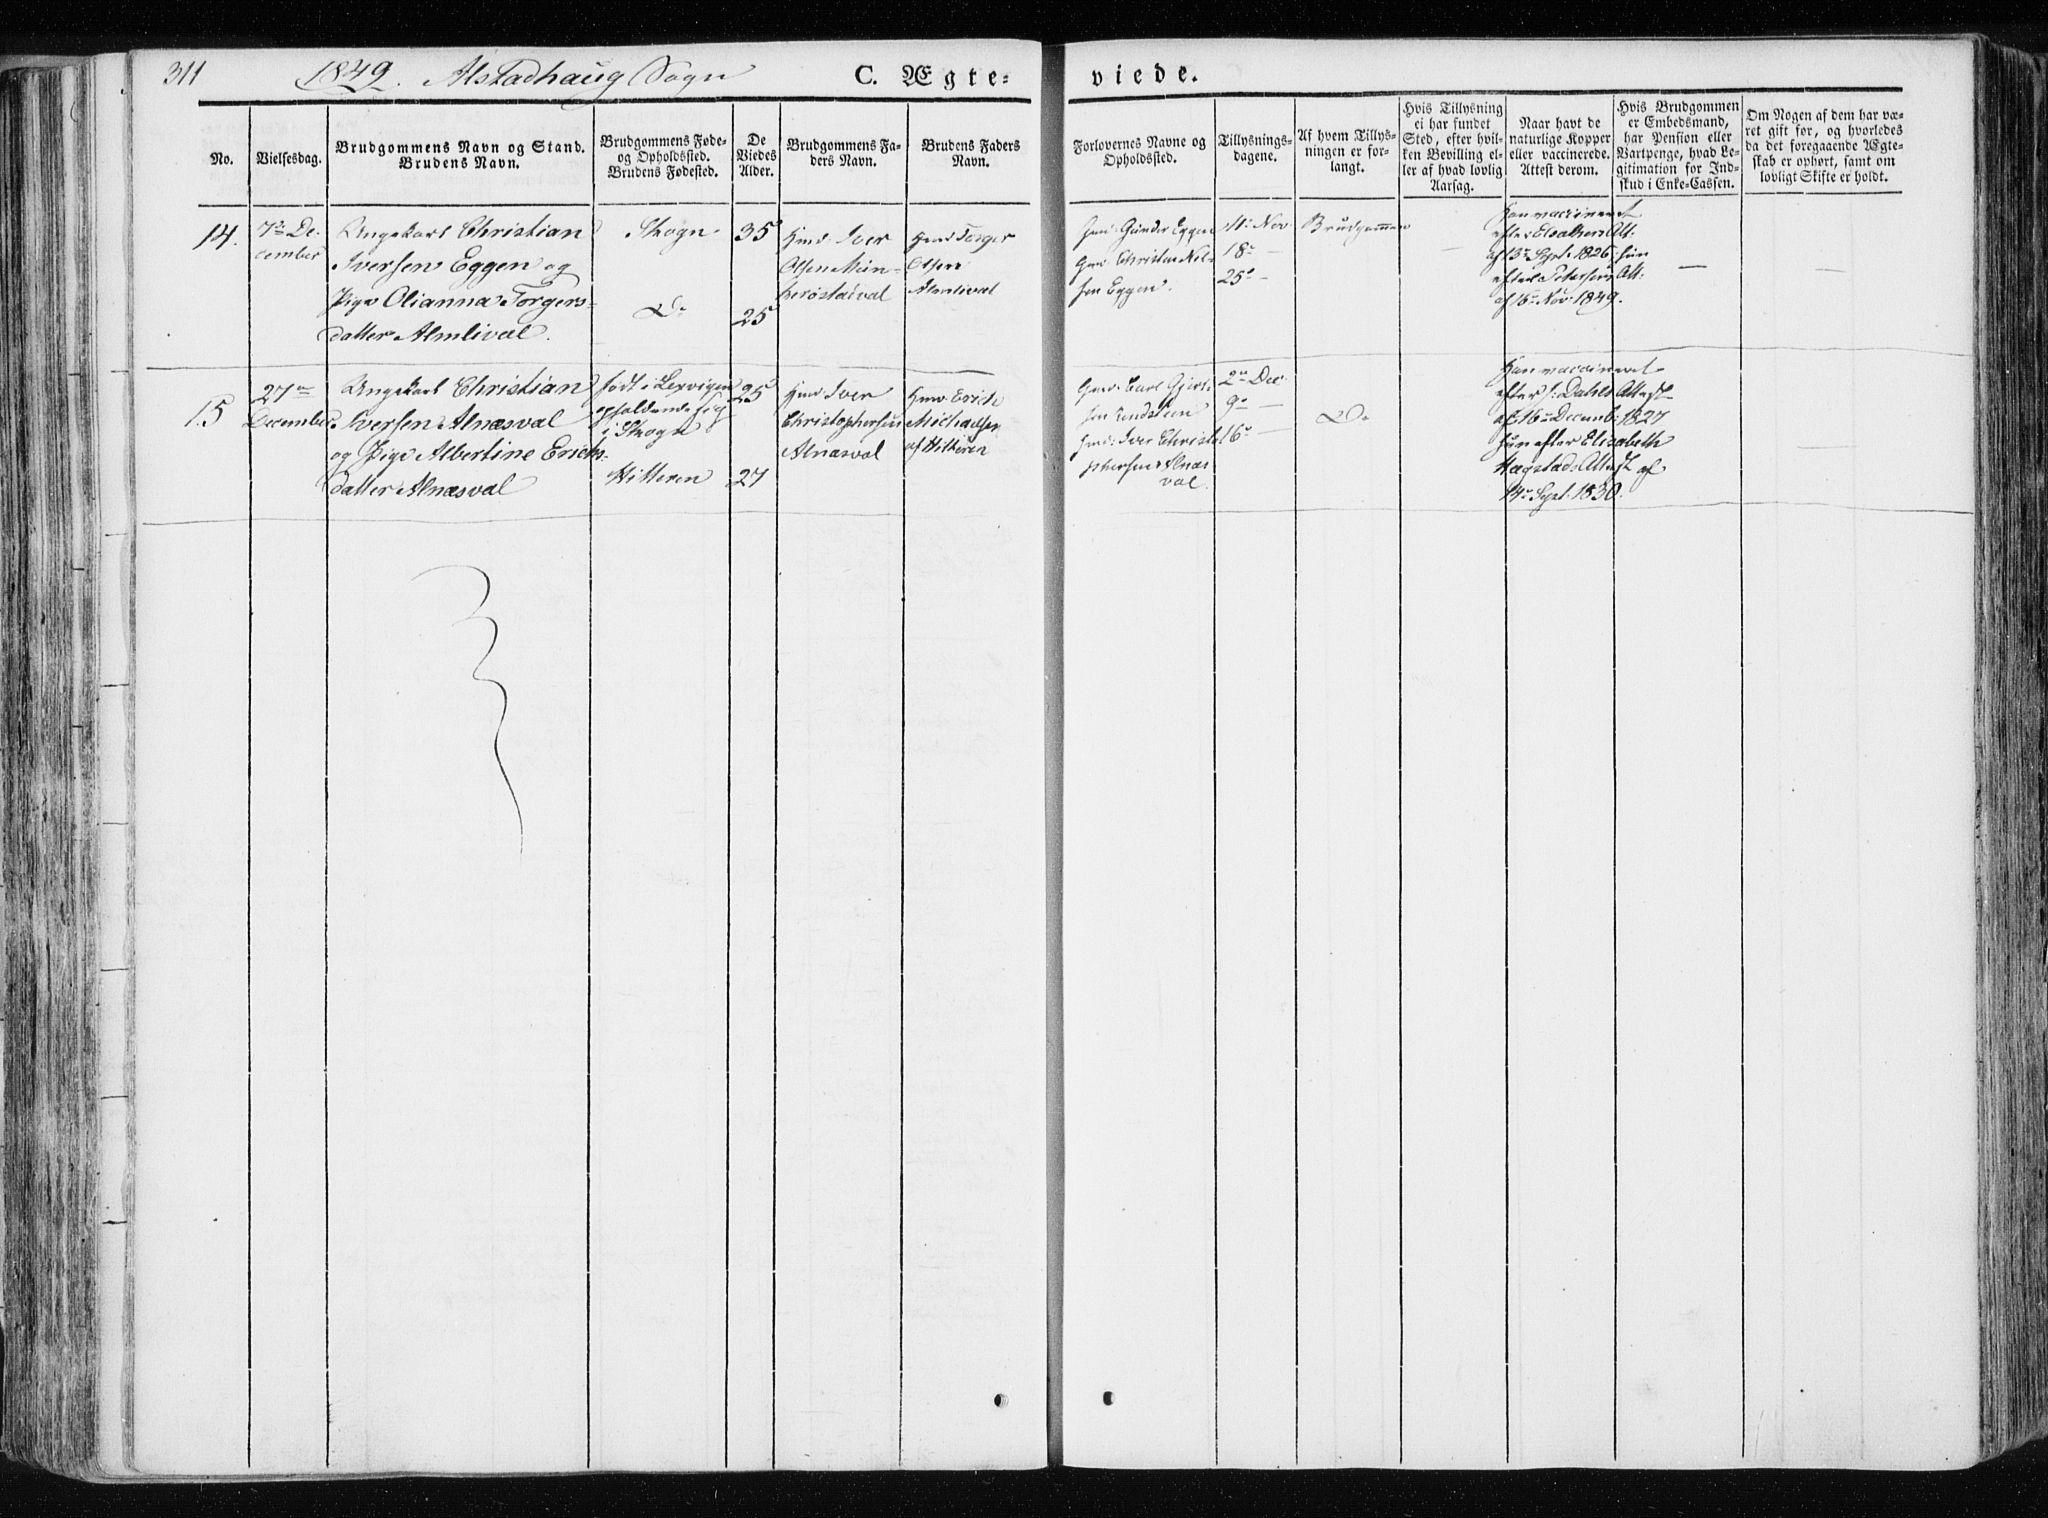 311 1849. Alstadhaug Sogn C. Ægte-
viede.
No.
Vielsesdag.
Brudgommens Navn og Stand.
Brudens Navn.
Brudgommens Føde-
og Opholdssted.
Brudens Fødested.
De
Viedes
Alder.
Brudgommens Fa-
ders Navn.
Brudens Faders
Navn.
Forlovernes Navne og
Opholdssted.
Tillysnings-
dagene.
Af hvem Tillys-
ningen er for-
langt.
Hvis Tillysning
ei har fundet
Sted, efter hvil-
ken Bevilling el-
ler af hvad lovlig
Aarsag.
Naar havt de
naturlige Kopper
eller vaccinerede.
Attest derom.
Hvis Brudgommen
er Embedsmand,
har Pension eller
Vartpenge, hvad Le-
gitimation for Ind-
skud i Enke-Cassen.
Om Nogen af dem har væ-
ret gift før, og hvorledes
da det foregaaende Ægte-
skab er ophørt, samt om
lovligt Skifte er holdt.
14.
7de De-
cember
Ungekarl Christian
Iversen Eggen og
Pige Olianna Torgers-
datter Almlival.
Skogn
Do
35
25
Hmd Iver
Olsen
Hmd Torger
Olsen
Almlival
Gmd Gunder Eggen
Gmd Christen Nil-
sen Eggen.
11: Nov.
18: —
25: —
Brudgommen
—
Han vaccineret
efter Att:
af 13: Sept. 1826, hun
efter Petersens Att:
af 16: Nov. 1849.
—
—
15
27de
December
Ungekarl Christian
Iversen Alnæsval
og Pige Albertine Erichs-
datter Alnæsval
født i Lexvigen
opholdende sig
i Skogn
Hitteren
25
27
Hmd Iver
Christophersen
Alnæsval
Hmd Erich
Michaelsen
af Hitteren
Gmd: Carl Gjert-
sen
Hmd: Iver Christo-
phersen Alnæs
val.
2den Dec.
9: —
16: —
Do
Han vaccineret
efter S: Dahls Attest
af 16: Decemb: 1827
hun efter Elisabeth
Hægstads Attest af
14: Sept. 1830.
—